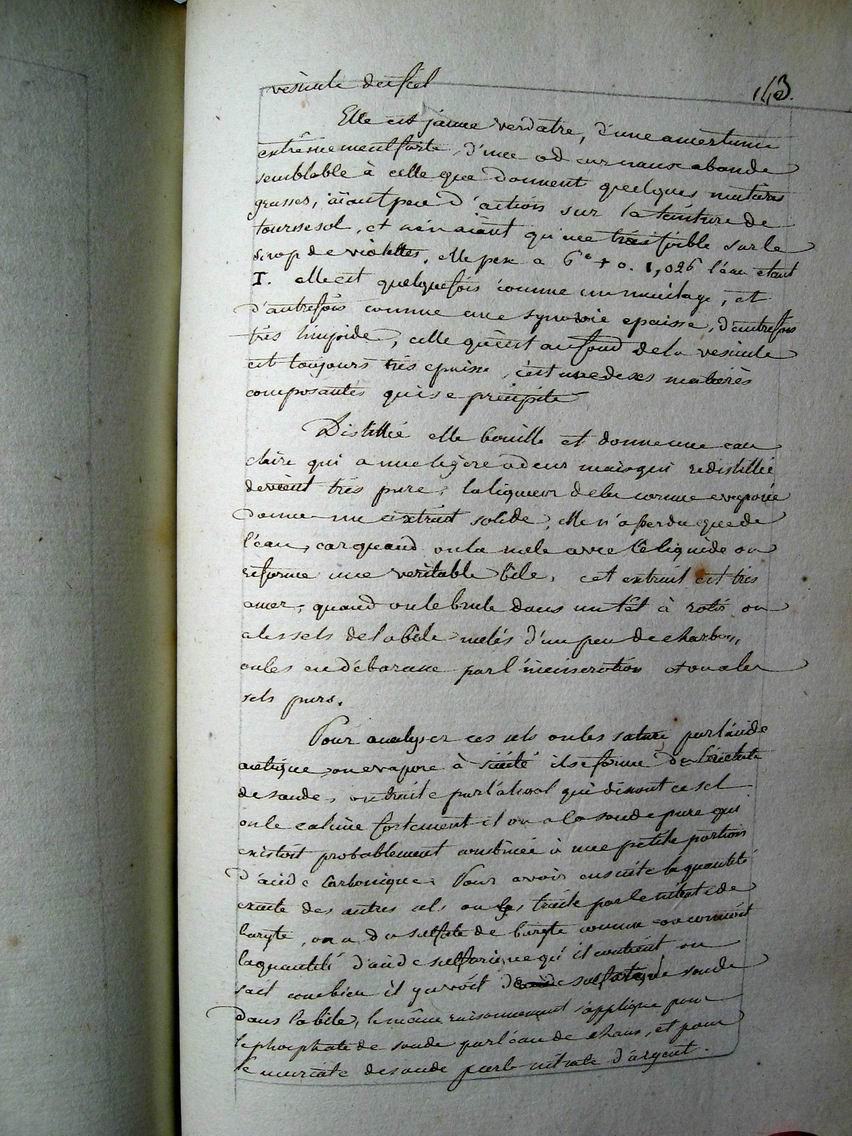 vésicule du fiel
143.
Elle est jaune verdatre, d'une amertume
extrêmement forte, d'une odeur nauseabonde
semblable à celle que donnent quelques matières
grasses, aiant peu d'action sur la teinture de
tournesol, et n'en aiant qu'une tres foible sur le
sirop de violettes. elle pese a 6° + 0. 1,026 l'eau etant
I. elle est quelquefois comme un mucilage, et
d'autrefois comme une synovie epaisse, d'autrefois
très limpide, celle qui est au fond de la vesicule
est toujours très epaisse, c'est une de ses matières
composantes qui se précipite
Distillée elle bouille et donne une eau
claire qui a une légère odeur mais qui redistillée
devient très pure, la liqueur de la cornue evaporée
donne un extrait solide, elle n'a perdu que de
l'eau, car quand on la mele avec le liquide on
reforme une veritable bile, cet extrait est très
amer, quand on le brule dans un têt à rotir on
a les sels de la bile melés d'un peu de charbon,
on les en débarasse par l'incineration et on a les
sels purs.
Pour analyser ces sels on les sature par l'acide
acétique, on evapore à siccité il se forme de l'acétate
de soude, on traite par l'alcool qui dissout ce sel
on le calcine fortement et on a la soude pure qui
existoit probablement combinée à une petite portion
d'acide carbonique. Pour avoir ensuite la quantité
exacte des autres sels on les traite par le nitrate de
baryte, on a du sulfate de baryte comme on connoit
la quantité d'acide sulfurique qu'il contient on
sait combien il y avoit de sulfate de soude
dans la bile, le même raisonnement s'applique pour
le phosphate de soude par l'eau de chaux, et pour
le muriate de soude par le nitrate d'argent.